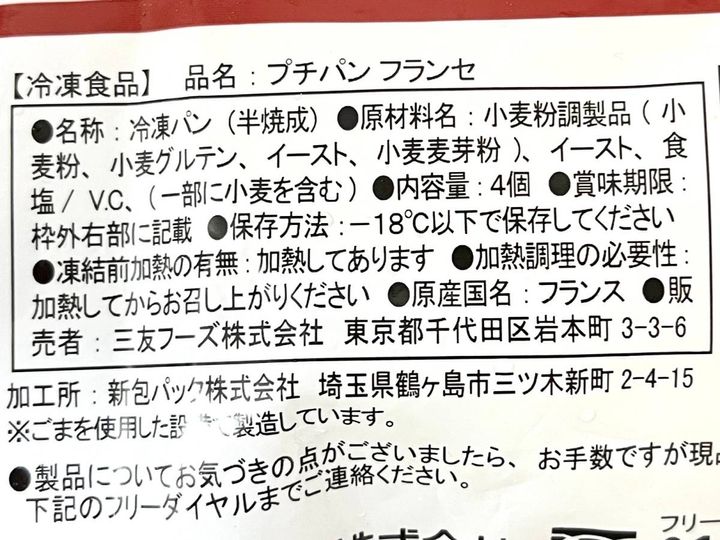 【冷凍食品】 品名：プチパン フランセ
●名称：冷凍パン（半焼成）●原材料名：小麦粉調製品（小
麦粉、小麦グルテン、イースト、小麦麦芽粉）、イースト、食
塩/ V.C、（一部に小麦を含む）●内容量：4個 ●賞味期限：
枠外右部に記載 ●保存方法：－18℃以下で保存してください
●凍結前加熱の有無：加熱してあります ●加熱調理の必要性：
加熱してからお召し上がりください ●原産国名：フランス ●販
売者：三友フーズ株式会社 東京都千代田区岩本町 3-3-6
加工所：新包パック株式会社 埼玉県鶴ヶ島市三ツ木新町 2-4-15
※ごまを使用した設で製造しています。
●製品についてお気づきの点がございましたら、お手数ですが現
下記のフリーダイヤルまでご連絡ください。
フリー